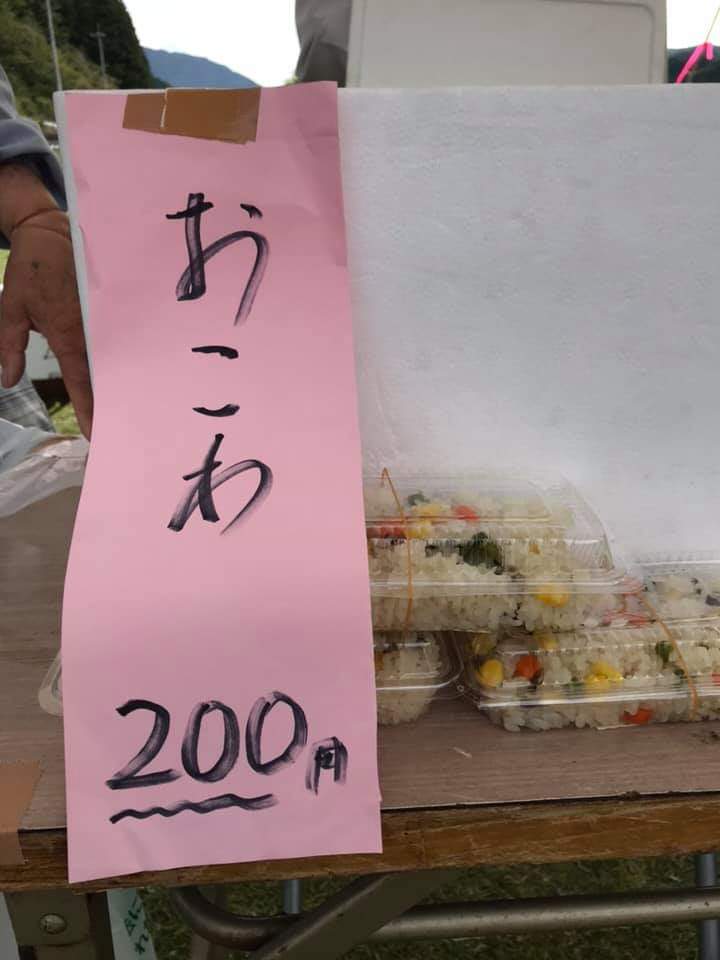 おこわ
200円